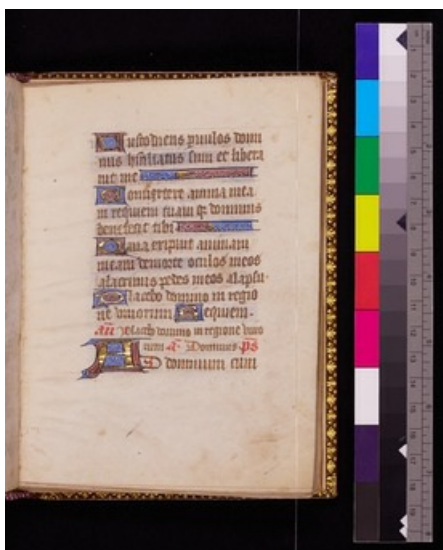 Custodiens pruulos domi
nus humiliatus sum et libera
uit me
Conuertere anima mea
in requiem tuam q̄ dominus
benefecit tibi
Quia eripuit animam
meam de morte oculos meos
a lacrimis pedes meos a lapsu
Placebo domino in regio
ne viuorum Requiem.
añ Placebo domino in regione viuo
rum a Dominus ps
Ad dominum cum